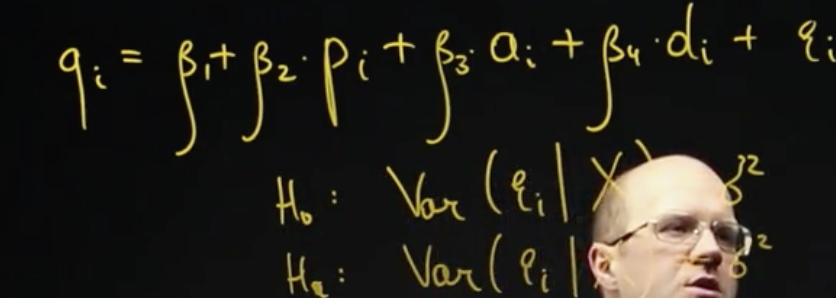 qᵢ = β₁ + β₂·pᵢ + β₃·aᵢ + β₄·dᵢ + εᵢ
H₀: Var(εᵢ|X) σ²
Hₐ: Var(εᵢ| σ²